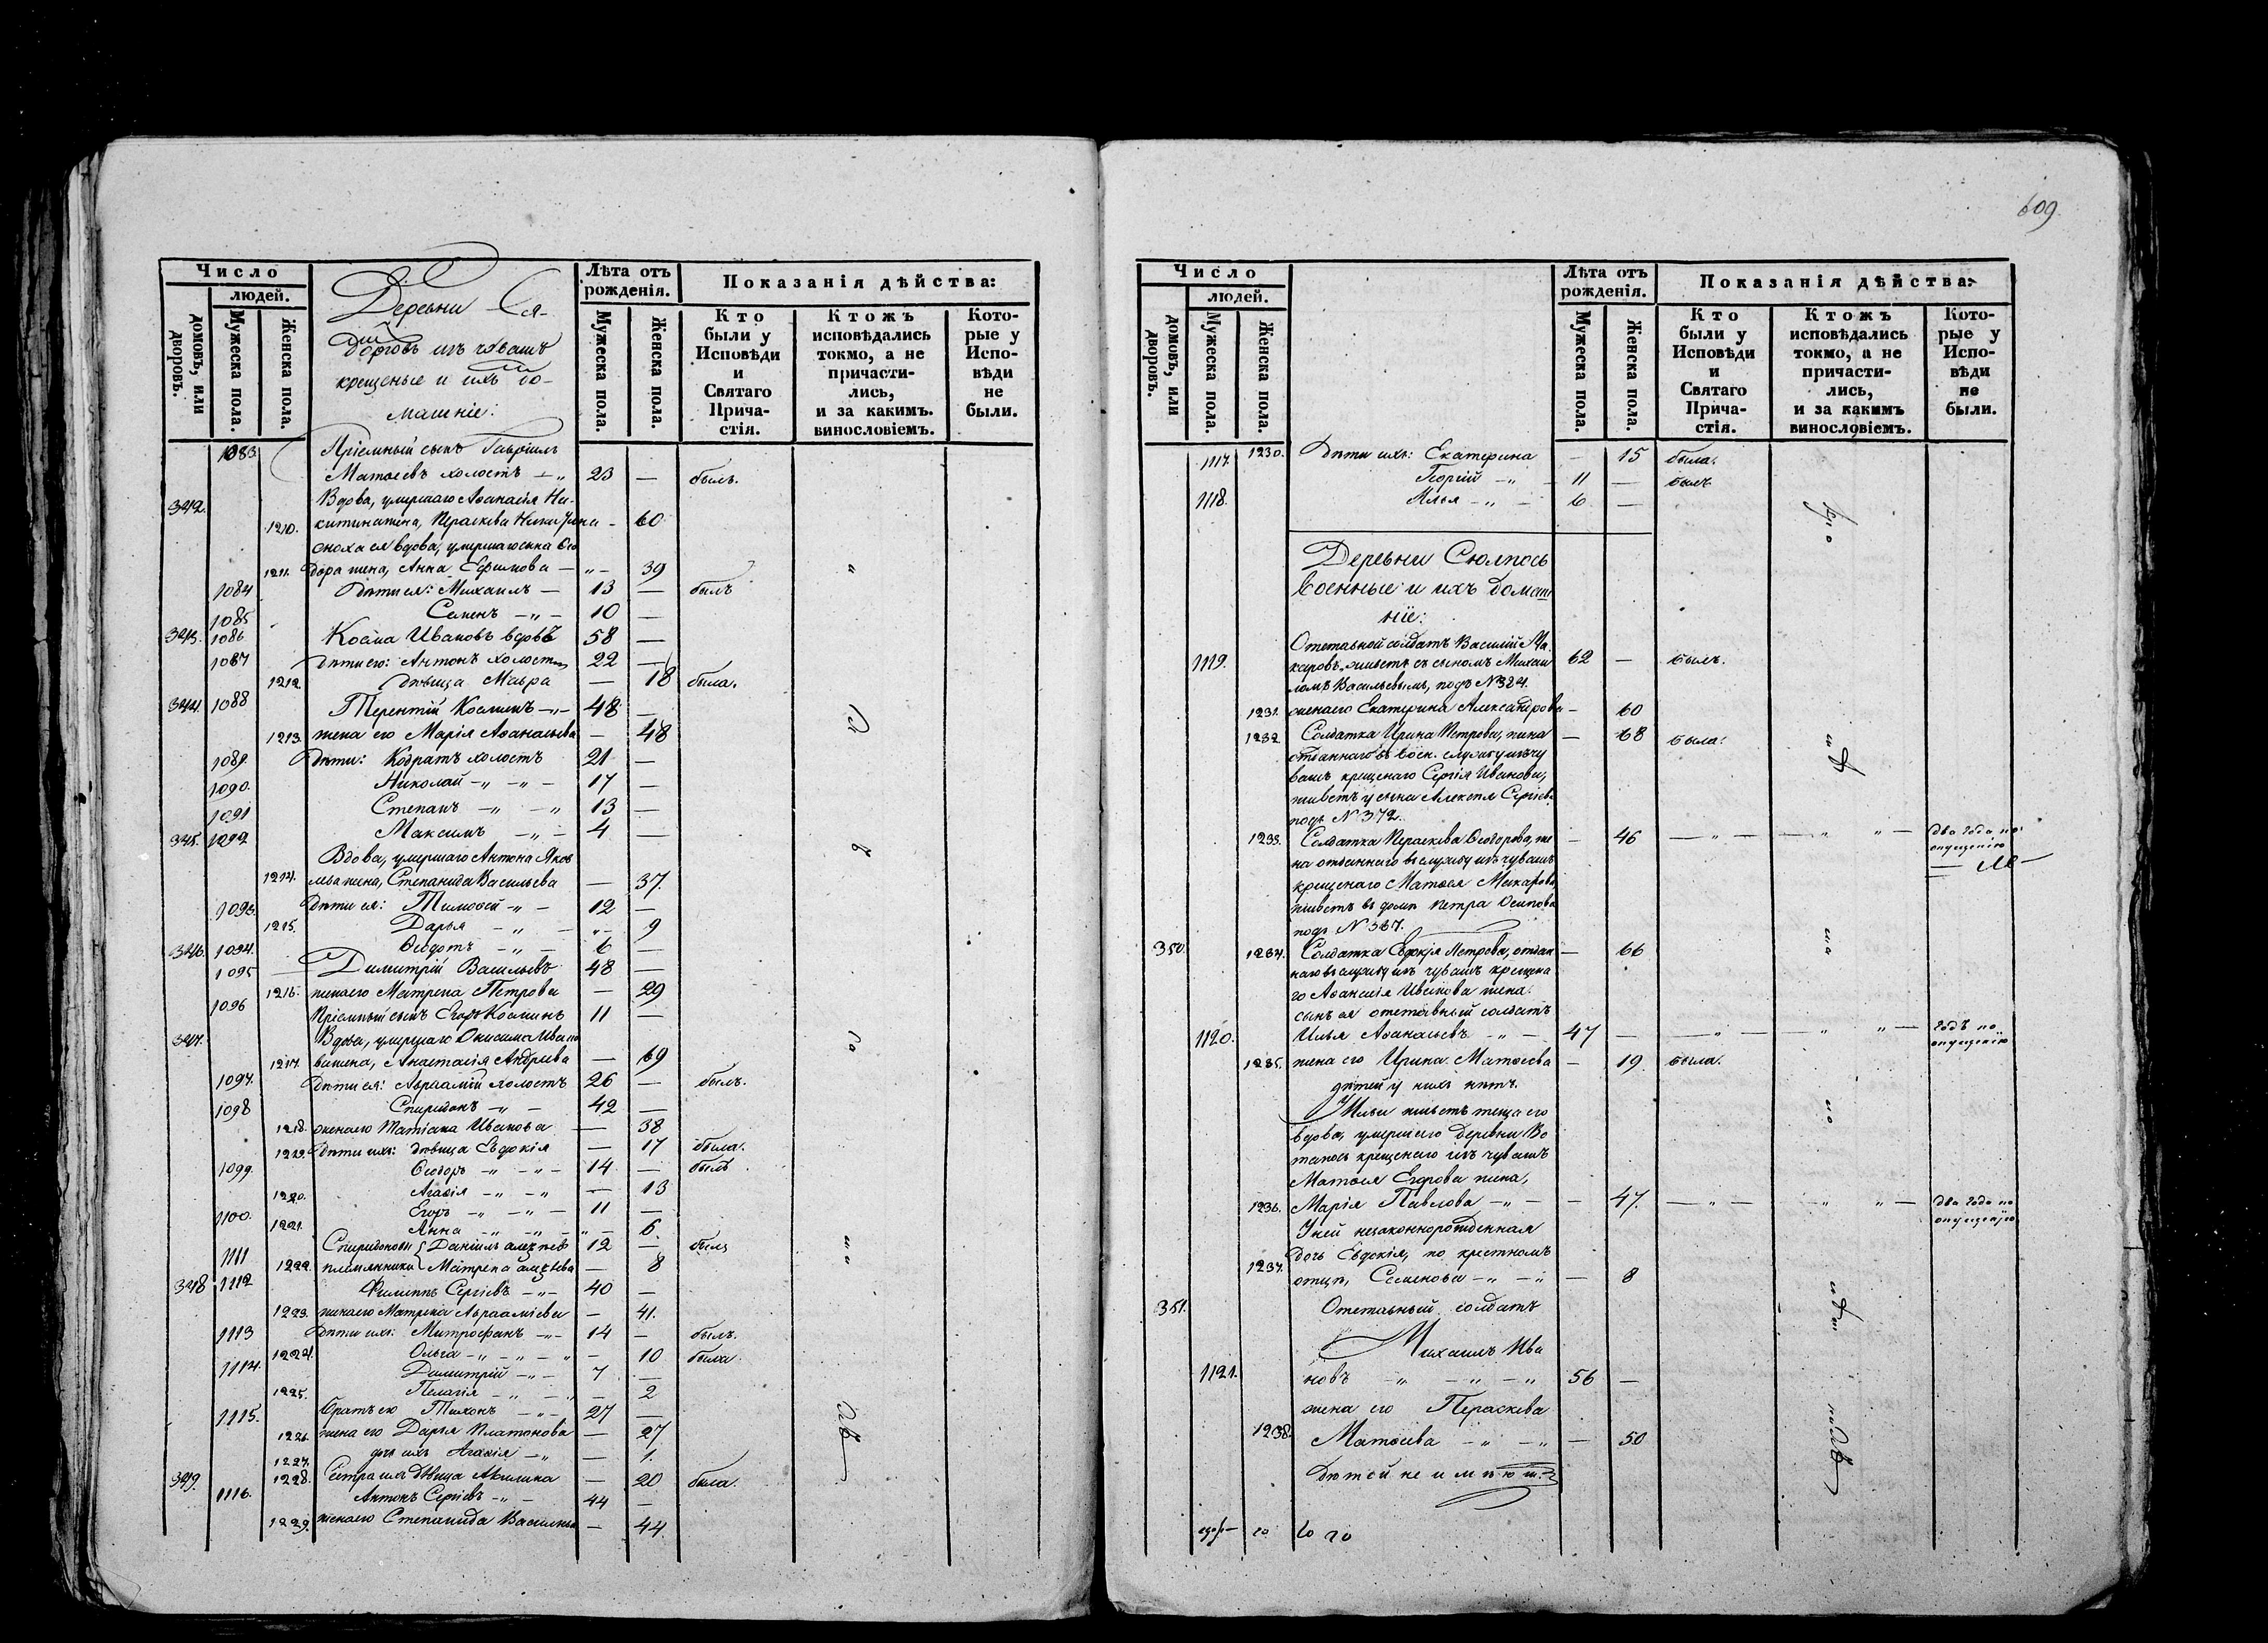 609.
Число
людей.
домовъ, или дворовъ.
Мужеска пола.
Женска пола.
Деревни Ся-
изъ чувашъ
крещеные и ихъ до-
машніе:
Лѣта отъ рожденія.
Мужеска пола.
Женска пола.
Показанія дѣйства:
Кто были у Исповѣди и Святаго Прича-стія.
Ктожъ исповѣдались токмо, а не причасти-лись, и за какимъ. винословіемъ.
Кото-рые у Испо-вѣди не были.
1083. Пріемный сынъ Гавріилъ
Матѳеевъ холостъ — „ 23 — былъ.
342. Вдова, умершаго Аѳанасія Ни-
1210. китина жена, Параскева Никифорова - 60
сноха ея вдова, умершаго сына Ѳео
1211. дора жена, Анна Ефимова — „ - 39
1084 Дѣти ея: Михаилъ — 13 — былъ
1085 Семенъ - „ - 10 —
343. 1086 Косма Ивановъ вдовъ 58 —
1087 Дѣти его: Антонъ холостъ 22 —
1212. дѣвица Мавра — 18 была.
344. 1088 Терентій Косминъ - „ - 48 —
1213. жена его Марія Аѳанасьева — 48
1089. Дѣти: Кодратъ холостъ 21 —
1090. Николай - „ - „ - 17 —
1091 Степанъ - „ - „ 13 —
345. 1092 Максимъ - „ - 4 —
Вдова, умершаго Антона Яков
1214. лева жена, Степанида Васильева — 37.
1093. Дѣти ея: Тимоѳей - „ - 12 —
1215. Дарья - „ - „ - 9
346. 1094. Ѳеодотъ - „ - 6 —
1095 Димитрій Васильевъ 48 —
1216. жена его Матрена Петрова — 29
1096 Пріемный сынъ Егоръ Косминъ 11 —
347. Вдова, умершаго Онисима Ивано
1217. ва жена, Анастасія Андреева — 69
1097. Дѣти ея: Авраамій холостъ 26 — былъ.
1098 Спиридонъ - „ - 42 —
1218. жена его Татіана Иванова — 38
1219. Дѣти ихъ: дѣвица Евдокія — 17 была.
1099. Ѳеодоръ - „ - „ - 14 — былъ
1220. Агаѳія - „ - „ — 13
1100. Егоръ - „ - „ - 11 —
1221. Анна - „ - „ - „ - 6.
1111 Спиридоновы Даніилъ 12 — былъ
1222. племянники Матрена — 8
348 1112 Филиппъ Сергіевъ - „ - 40 —
1223. жена его Матрена Авраамiева — 41.
1113 Дѣти ихъ: Митрофанъ - „ - 14 — былъ.
1224. Ольга - „ - „ - „ — 10 была.
1114. Димитрій - „ - 7 —
1225. Пелагія - „ - „ — 2
1115. Братъ его Тихонъ - „ - 27 —
1226. жена его Дарья Платонова — 27
1227. дочь ихъ Агаѳія - „ — 1.
1228. Сестра ихъ дѣвица Акилина — 20 была.
349. 1116. Антонъ Сергіевъ - „ - 44 —
1229. жена его Степанида Васильева — 44.
Число
людей.
домовъ, или дворовъ.
Мужеска пола.
Женска пола.
Лѣта отъ рожденія.
Мужеска пола.
Женска пола.
Показанія дѣйства:
Кто были у Исповѣди и Святаго Прича-стія.
Ктожъ исповѣдались токмо, а не причасти-лись, и за какимъ винословіемъ.
Кото-рые у Испо-вѣди не были.
1230. Дѣти ихъ: Екатерина — 15 была.
1117. Георгій - „ - 11 — былъ
1118. Илья - „ - 6 —
Деревни Сюлпось
военные и ихъ домаш
ніе:
Отставной солдатъ Василій Ма
1119. каровъ, живетъ съ сыномъ Михаи 62 — былъ.
ломъ Васильевымъ, подъ №324.
1231. жена его Екатерина Александрова — 60
1232 Солдатка Ирина Петрова, жена — 68 была.
отданнаго въ воен. службу изъ чу
вашъ крещенаго Сергія Иванова,
живетъ у сына Алексѣя Сергіева
подъ № 372.
1233. Солдатка Параскева Ѳеодорова, же — 46 — „ — — „ „ — два года по опущенію
на отданнаго въ службу изъ чувашъ
крещенаго Матѳея Макарова,
живетъ въ домѣ Петра Осипова
подъ № 367.
350. 1234. Солдатка Евдокія Петрова, отдан — 66
наго въ службу изъ чувашъ крещена
го Аѳанасія Иванова жена.
сынъ ея отставный солдатъ
1120. Илья Аѳанасьевъ - „ - 47 — — „ — — „ „ — годъ по опущенію
1235. жена его Ирина Матѳеева — 19 была.
дѣтей у нихъ нѣтъ.
У Ильи живетъ теща его
вдова, умершаго деревни Во
крещенаго изъ чувашъ
Матѳея Егорова жена,
1236. Марія Павлова - „ - — 47. — „ — „ „ — два года по опущенію
У ней незаконнорожденная
дочь Евдокія, по крестномъ
1237. отцѣ, Семенова - „ - „ — 8
351. Отставный солдатъ
Михаилъ Ива
1121. новъ - „ - „ - „ 56 —
жена его Параскева
1238. Матѳеева - „ - „ — 50
Дѣтей не имѣютъ.